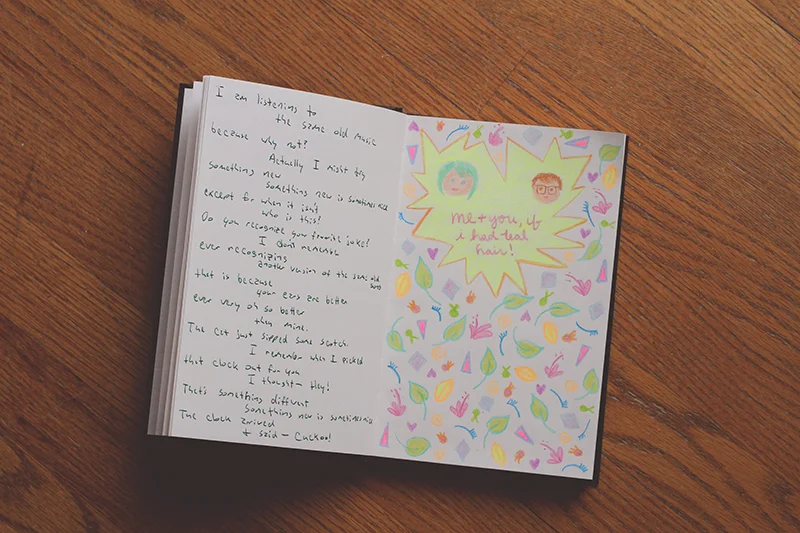 I am listening to
the same old music
because why not?
Actually I might try
something new
something new is sometimes nice
except for when it isn't
who is this?
Do you recognize your favorite joke?
I don't remember
ever recognizing
another version of the same old
that is because
your ears are better
ever very oh so better
then mine.
The cat just sipped some scotch.
I remember when I picked
that clock out for you
I thought - Hey!
That's something different
Something new is sometimes nice
The clock arrived
+ said - Cuckoo!
me + you, if
i had teal
hair!